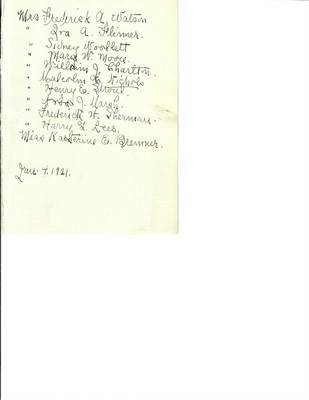 Mrs Frederick A. Watson
" Ira A. Flinner.
" Sidney Woollett
" Mary W. Moore.
" William J. Charlton.
" Malcolm E. Nichols
" Henry E.
" J. Marsh.
" Frederick H. Sherman.
" Harry L. Lees.
Miss Katherine E. Bremner.
Jan. 4. 1921.